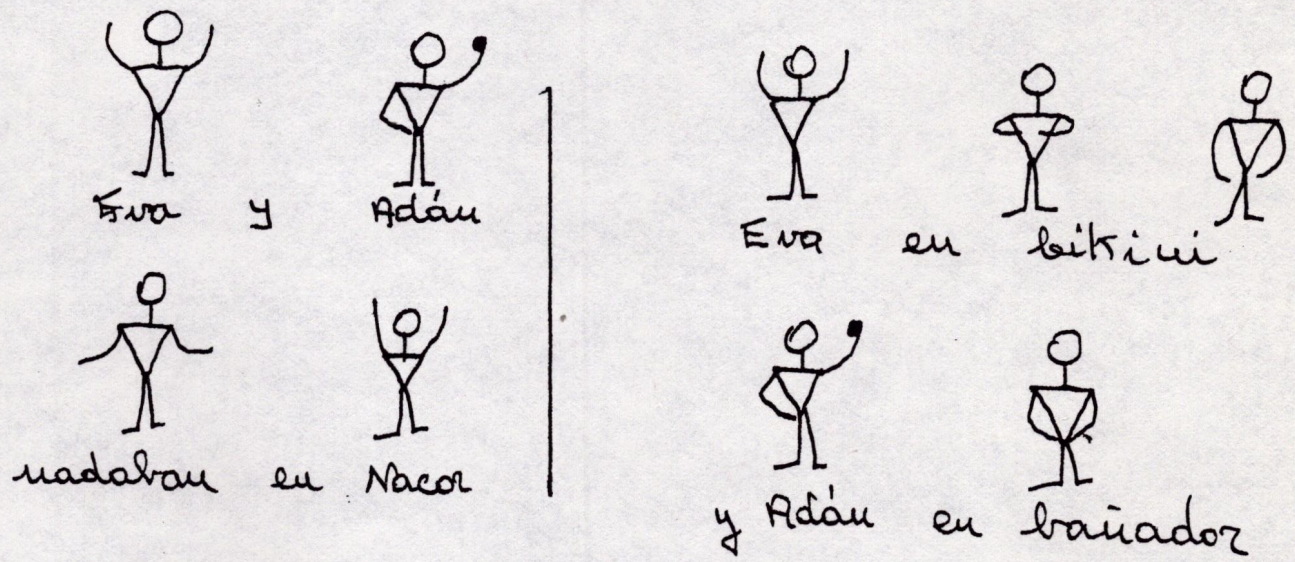 Eva y Adán
nadaban en Nacor
Eva en bikini
y Adán en bañador